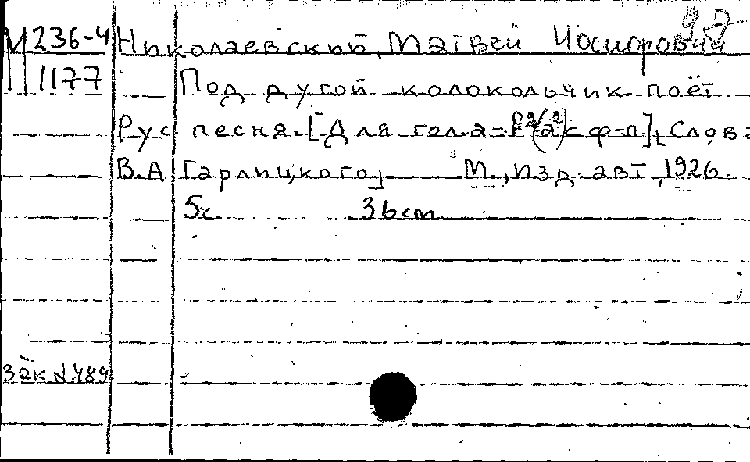 М 236-4 Николаевский, Матвей Иосифович
1177 Под дугой колокольчик поёт
Рус песня. [Для голоса с ф-п], Слова
В.А Гарлицкого М., изд. авт, 1926.
5с. 36cm
Зак. 489